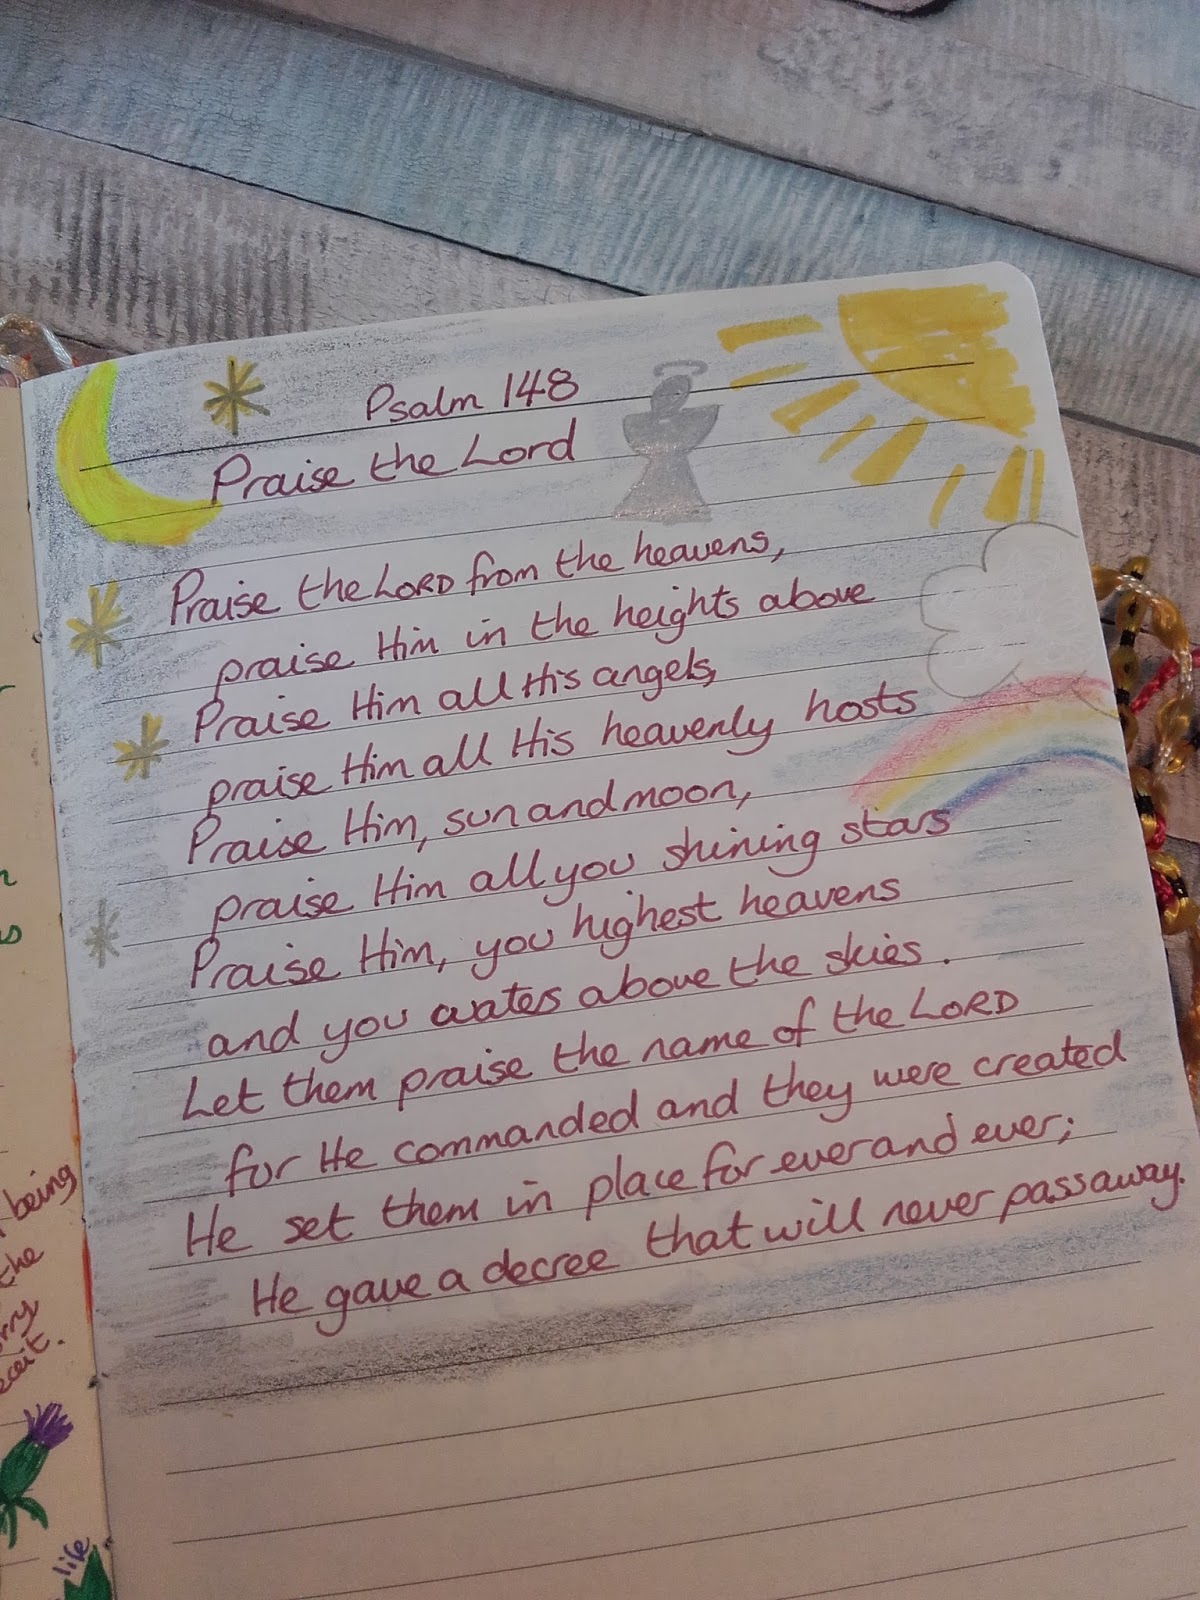 Psalm 148
Praise the Lord
Praise the LORD from the heavens,
praise Him in the heights above
Praise Him all His angels,
praise Him all His heavenly hosts
Praise Him, sun and moon,
praise Him all you shining stars
Praise Him, you highest heavens
and you waters above the skies.
Let them praise the name of the LORD
for He commanded and they were created
He set them in place for ever and ever;
He gave a decree that will never pass away.
being
the
life